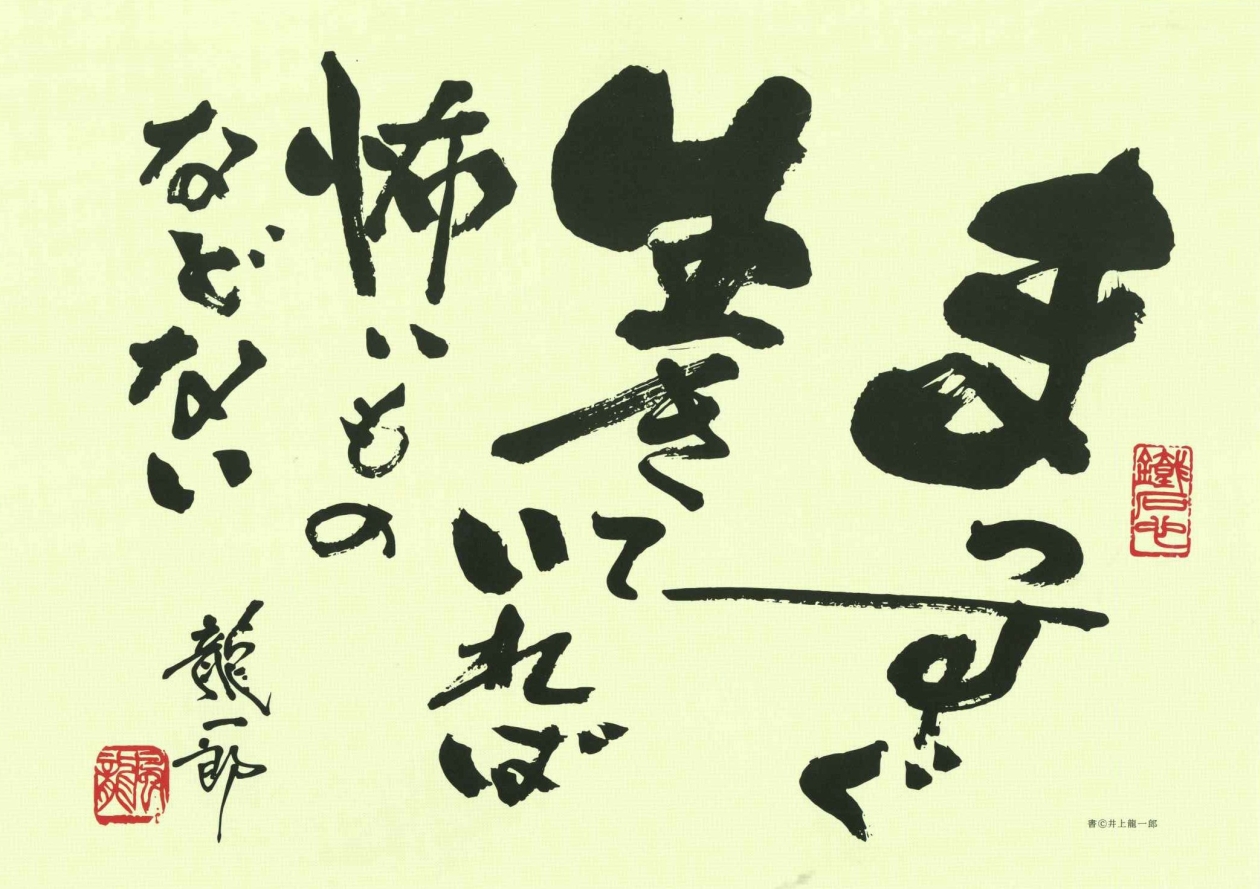 鐵石心
まっすぐ
生きて
いれば
怖いもの
などない
龍一郎
書©井上龍一郎